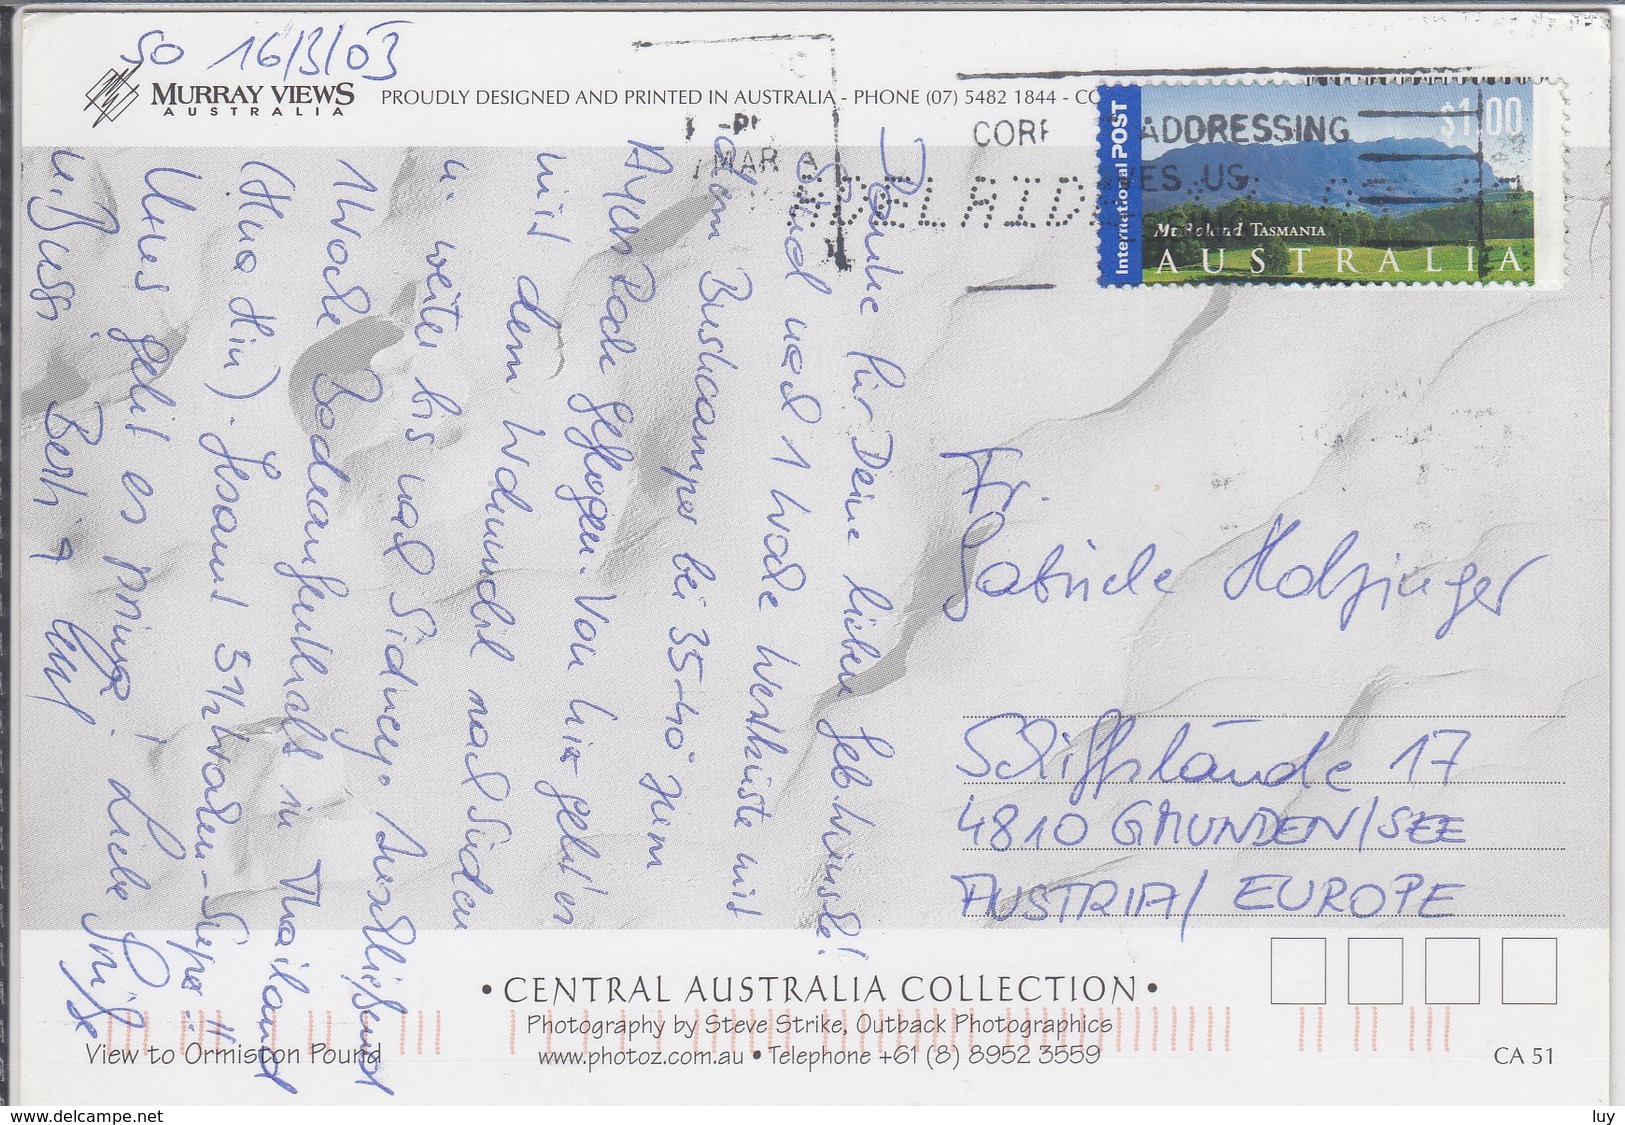 SO 16/3/03
MURRAY VIEWS
AUSTRALIA
PROUDLY DESIGNED AND PRINTED IN AUSTRALIA - PHONE (07) 5482 1844 - CO
MAR
ADELAIDE
CORR ADDRESSING
ES US
International POST
$1.00
Mt Roland TASMANIA
AUSTRALIA
Danke für Deine lieben Geb. Wünsche!
Sind nach 1 Woche Westküste mit
dem Bushcamper bei 35-40° zum
Ayers Rock geflogen. Von hier geht's
mit dem Wohnmobil nach Süden
u. weiter bis nach Sidney. Anschließend
1 Woche Badeaufenthalt in Thailand
(Hua Hin). Gesamt 5 1/2 Wochen - Super!!
Uns geht es prima! Liebe Grüße
u. Bussi Berti &
Fr.
Gabriele Holzinger
Schiffslände 17
4810 GMUNDEN/SEE
AUSTRIA/EUROPE
• CENTRAL AUSTRALIA COLLECTION •
Photography by Steve Strike, Outback Photographics
www.photoz.com.au • Telephone +61 (8) 8952 3559
View to Ormiston Pound
CA 51
www.delcampe.net
luy